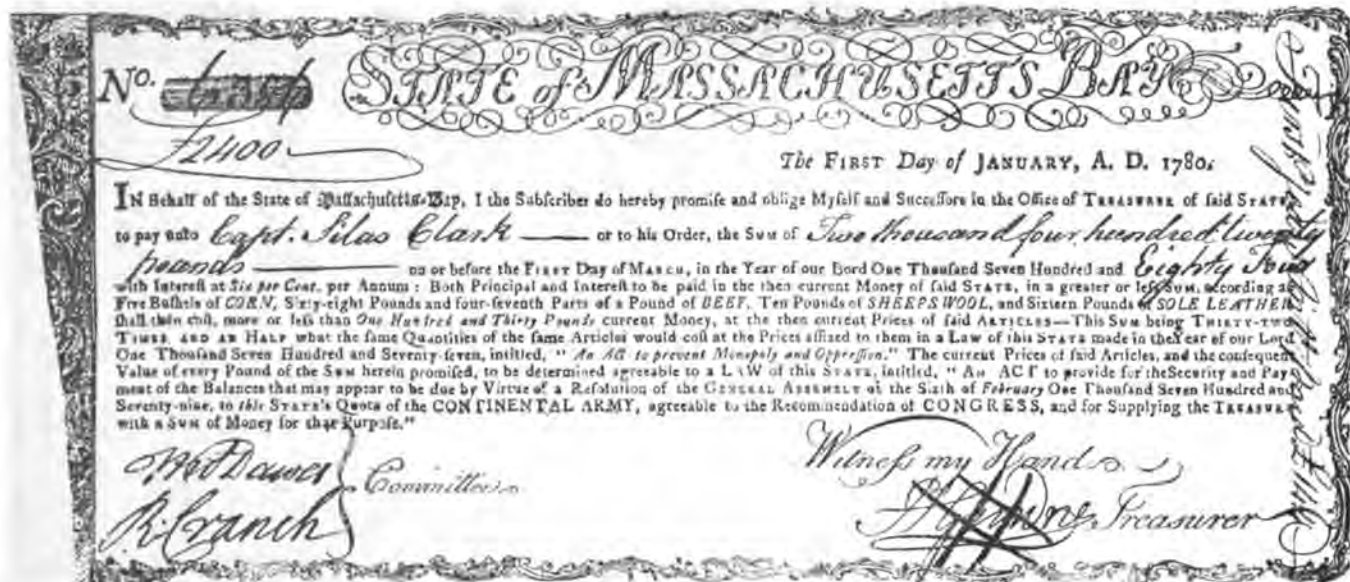 No.
STATE of MASSACHUSETTS BAY
£2400
The FIRST Day of JANUARY, A. D. 1780.
IN Behalf of the State of Massachusetts-Bay, I the Subſcriber do hereby promiſe and oblige Myſelf and Succeſſors in the Office of TREASURER of ſaid STATE,
to pay unto Capt. Silas Clark or to his Order, the SUM of Two thousand four hundred twenty
pounds on or before the FIRST Day of MARCH, in the Year of our Lord One Thouſand Seven Hundred and Eighty Four
with Intereſt at Six per Cent. per Annum: Both Principal and Intereſt to be paid in the then current Money of ſaid STATE, in a greater or leſs SUM, according as
Five Buſhels of CORN, Sixty-eight Pounds and four-ſeventh Parts of a Pound of BEEF, Ten Pounds of SHEEPS WOOL, and Sixteen Pounds of SOLE LEATHER
ſhall then coſt, more or leſs than One Hundred and Thirty Pounds current Money, at the then current Prices of ſaid ARTICLES—This SUM being THIRTY-TWO
TIMES AND AN HALF what the ſame Quantities of the ſame Articles would coſt at the Prices affixed to them in a Law of this STATE made in the Year of our Lord
One Thouſand Seven Hundred and Seventy-ſeven, intitled, "An Act to prevent Monopoly and Oppreſſion." The current Prices of ſaid Articles, and the conſequent
Value of every Pound of the SUM herein promiſed, to be determined agreeable to a LAW of this STATE, intitled, "An ACT to provide for the Security and Pay-
ment of the Balances that may appear to be due by Virtue of a Reſolution of the GENERAL ASSEMBLY of the Sixth of February One Thouſand Seven Hundred and
Seventy-nine, to this STATE's Quota of the CONTINENTAL ARMY, agreeable to the Recommendation of CONGRESS, and for Supplying the TREASURY
with a SUM of Money for that Purpoſe."
Witneſs my Hand
Dawes
R. Cranch
Committee
Treasurer